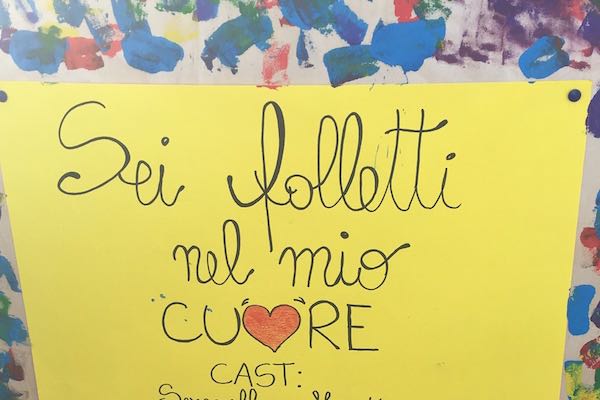 Sei folletti
nel mio
CUORE
CAST: